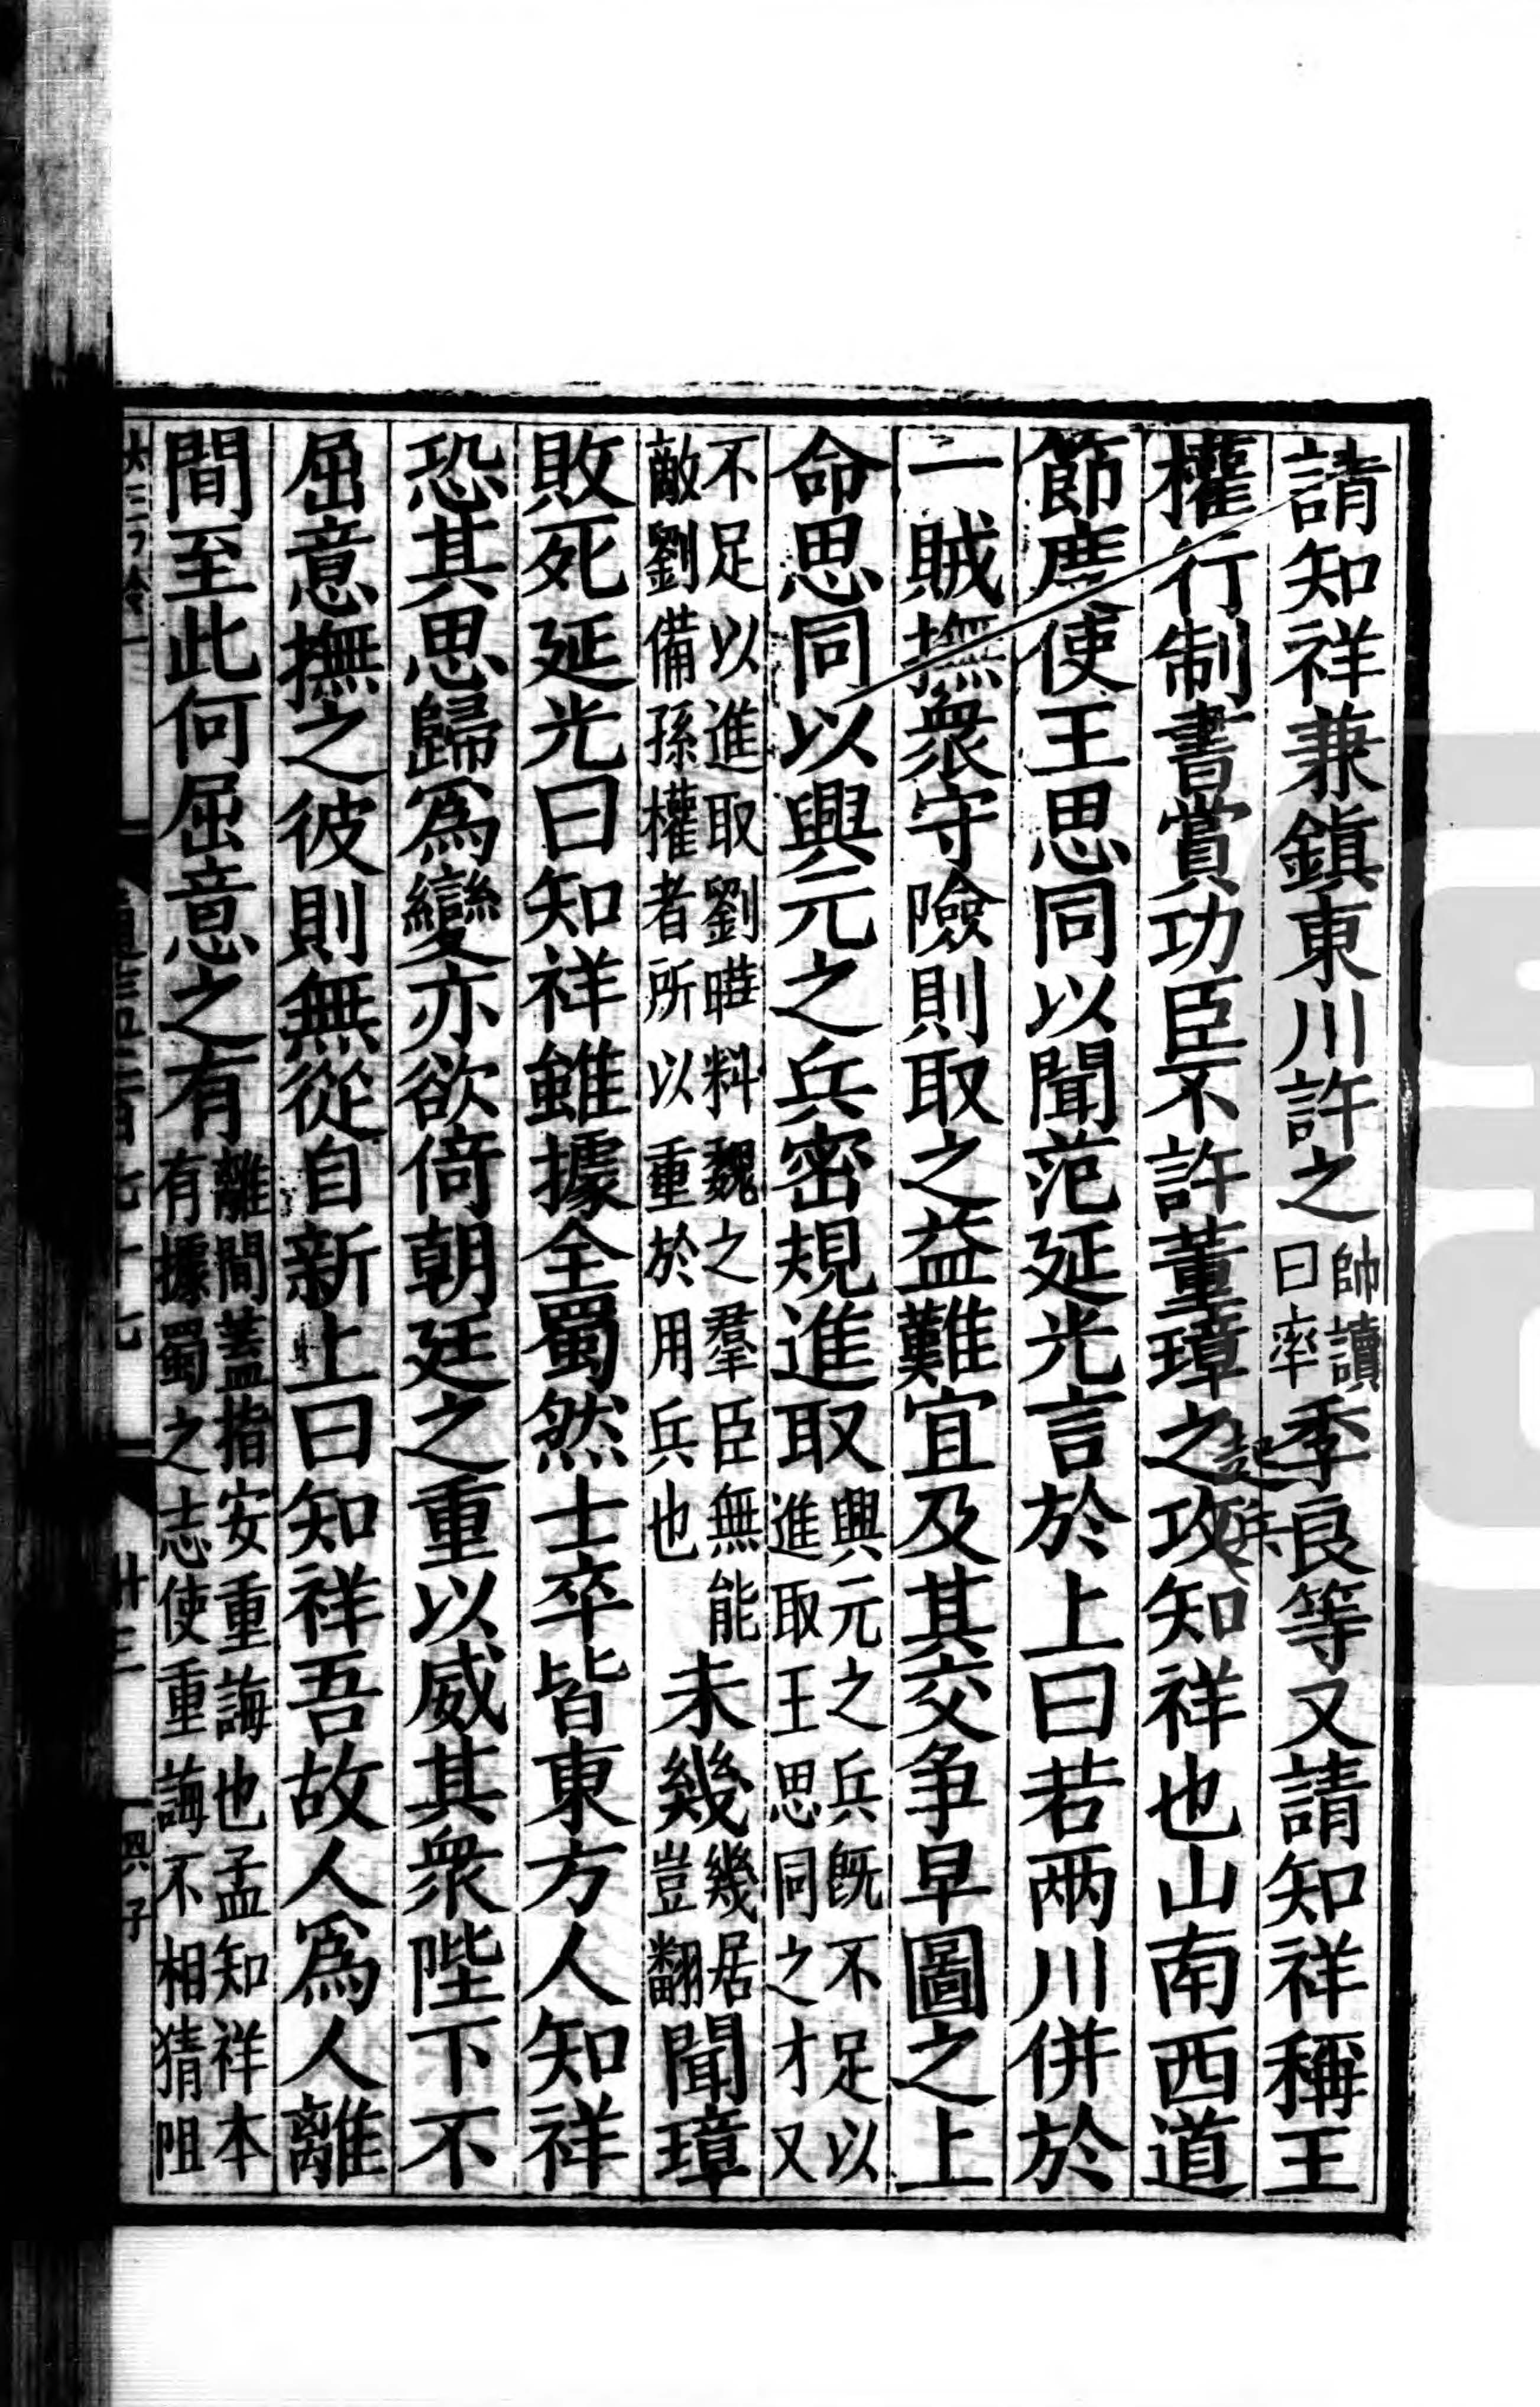 請知祥兼鎮東川許之帥讀曰率季良等又請知祥稱王
權行制書賞功臣不許董璋之攻知祥也山南西道
節度使王思同以聞范延光言於上曰若兩川併於
一賊撫衆守險則取之益難宜及其交争早圖之上
命思同以興元之兵密規進取興元之兵既不足以進取王思同之才又
不足以進取劉曄料魏之羣臣無能敵劉備孫權者所以重於用兵也未幾幾居豈翻聞璋
敗死延光曰知祥雖據全蜀然士卒皆東方人知祥
恐其思歸爲變亦欲倚朝廷之重以威其衆陛下不
屈意撫之彼則無從自新上曰知祥吾故人爲人離
間至此何屈意之有離間蓋指安重誨也孟知祥本有據蜀之志使重誨不相猜阻